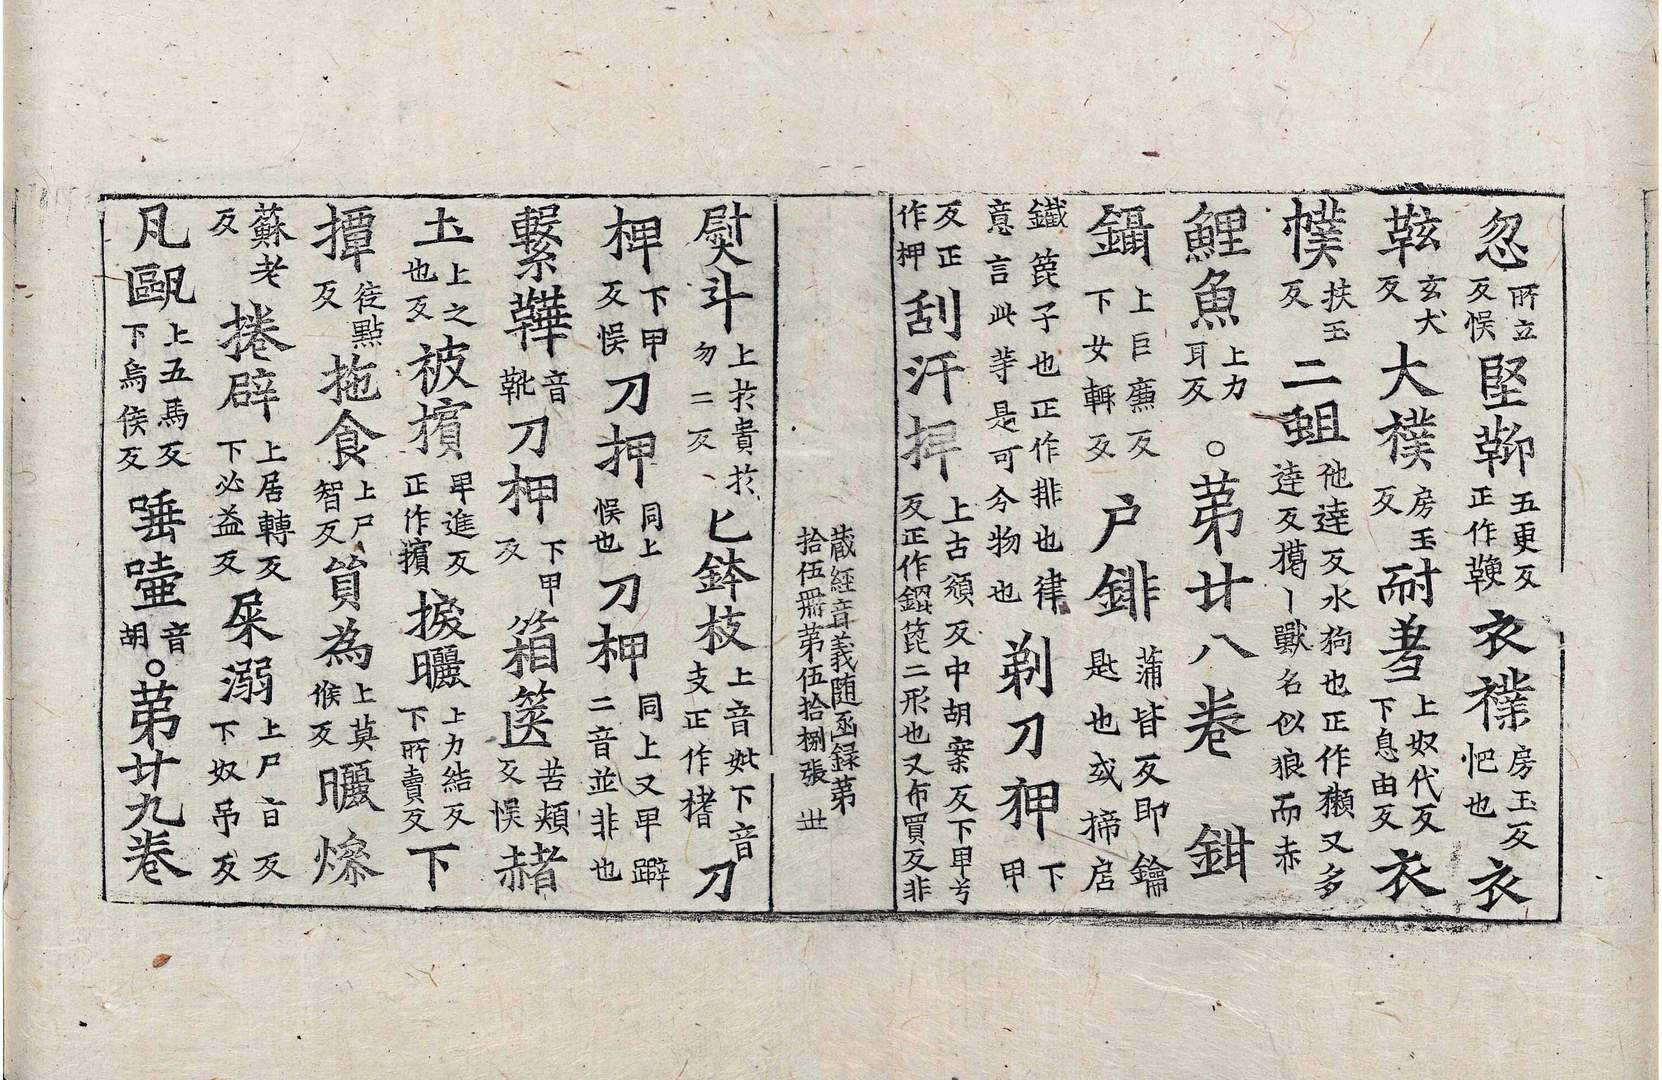 忽所立反悮堅鞕五更反正作鞕衣襆房玉反帊也衣
鞐玄犬反大襆房玉反耐著上奴代反下息由反衣
幞扶玉反二䖣他達反水狗也正作獺又多達反獦丨獸名似狼而赤
鯉魚上力耳反。苐廿八卷 鉗
鑷上巨廉反下女輒反 户錍蒲皆反即鑰匙也或揥居
鐵篦子也正作排也律意言此䓁是可今物也 剃刀狎下甲
反正作押刮汗押上古頒反中胡案反下甲兮反正作錍篦二形也又布買反非
藏經音義随函録苐拾伍冊苐伍拾捌張 丗
熨斗上扵貴扵勿二反、匕鉢枝上音妣下音支正作榰刀
柙下甲反悮刀押同上悮也刀柙同上又甲䠋二音並非也
繫鞾音靴刀柙下甲反 箱篋苦頰反悮赭
𡈽上之也反被擯卑進反正作擯捩曬上力結反下所賣反下
撢徒點反拖食上尸智反貿為上莫候反曬燥
蘇老反捲辟上居轉反下必益反屎溺上尸旨反下奴吊反
凡甌上五馬反下烏侯反唾壷音胡。苐廿九卷